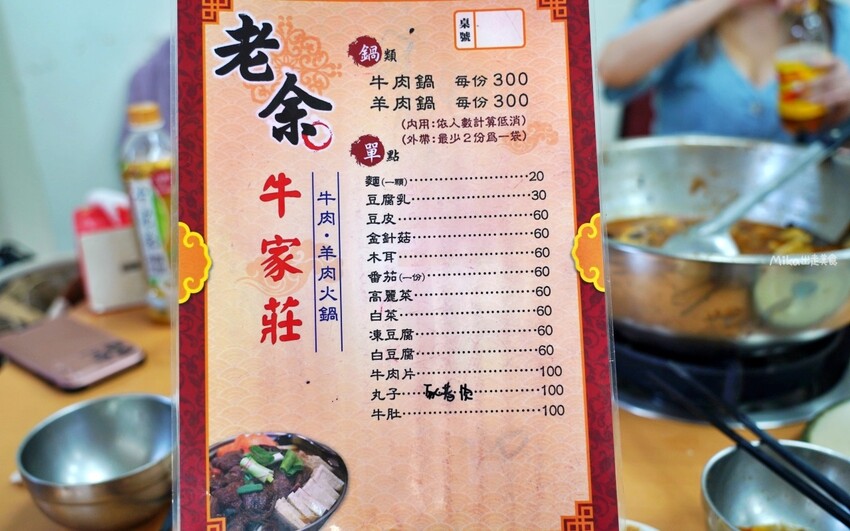 桌號
老余
牛家莊
牛肉·羊肉火鍋
鍋類
牛肉鍋 每份300
羊肉鍋 每份300
(內用:依人數計算低消)
(外帶:最少2份為一袋)
單點
麵(一顆)⋯⋯20
豆腐乳⋯⋯30
豆皮⋯⋯60
金針菇⋯⋯60
木耳⋯⋯60
番茄(一份)⋯⋯60
高麗菜⋯⋯60
白菜⋯⋯60
凍豆腐⋯⋯60
白豆腐⋯⋯60
牛肉片⋯⋯100
丸子⋯⋯100
牛肚⋯⋯100
Mika出走美食